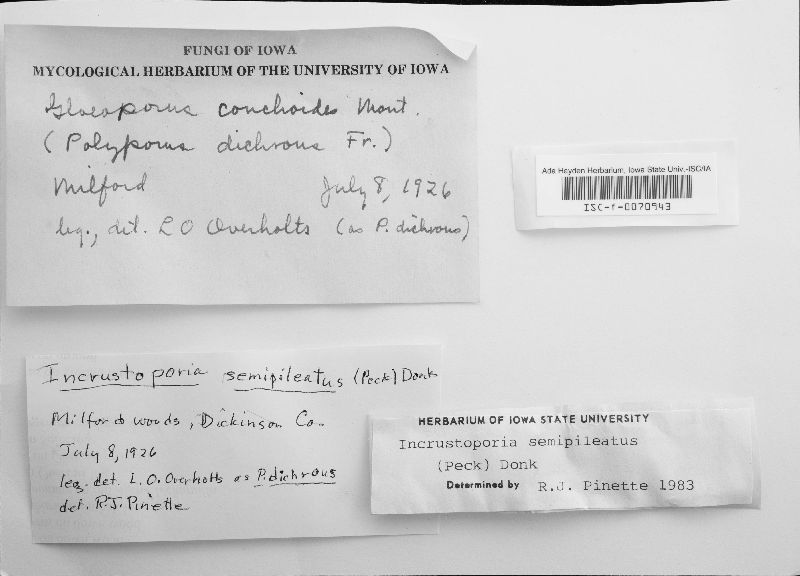 FUNGI OF IOWA
MYCOLOGICAL HERBARIUM OF THE UNIVERSITY OF IOWA
Gloeoporus conchoides Mont.
(Polyporus dichrous Fr.)
Milford July 8, 1926
leg., det. L O Overholts (as P. dichrous)
Ada Hayden Herbarium, Iowa State Univ.-ISC/IA
ISC-f-0070943
Incrustoporia semipileatus (Peck) Donk
Milford woods, Dickinson Co.
July 8, 1926
leg. det. L.O. Overholts as P. dichrous
det. R.J. Pinette
HERBARIUM OF IOWA STATE UNIVERSITY
Incrustoporia semipileatus
(Peck) Donk
Determined by R.J. Pinette 1983